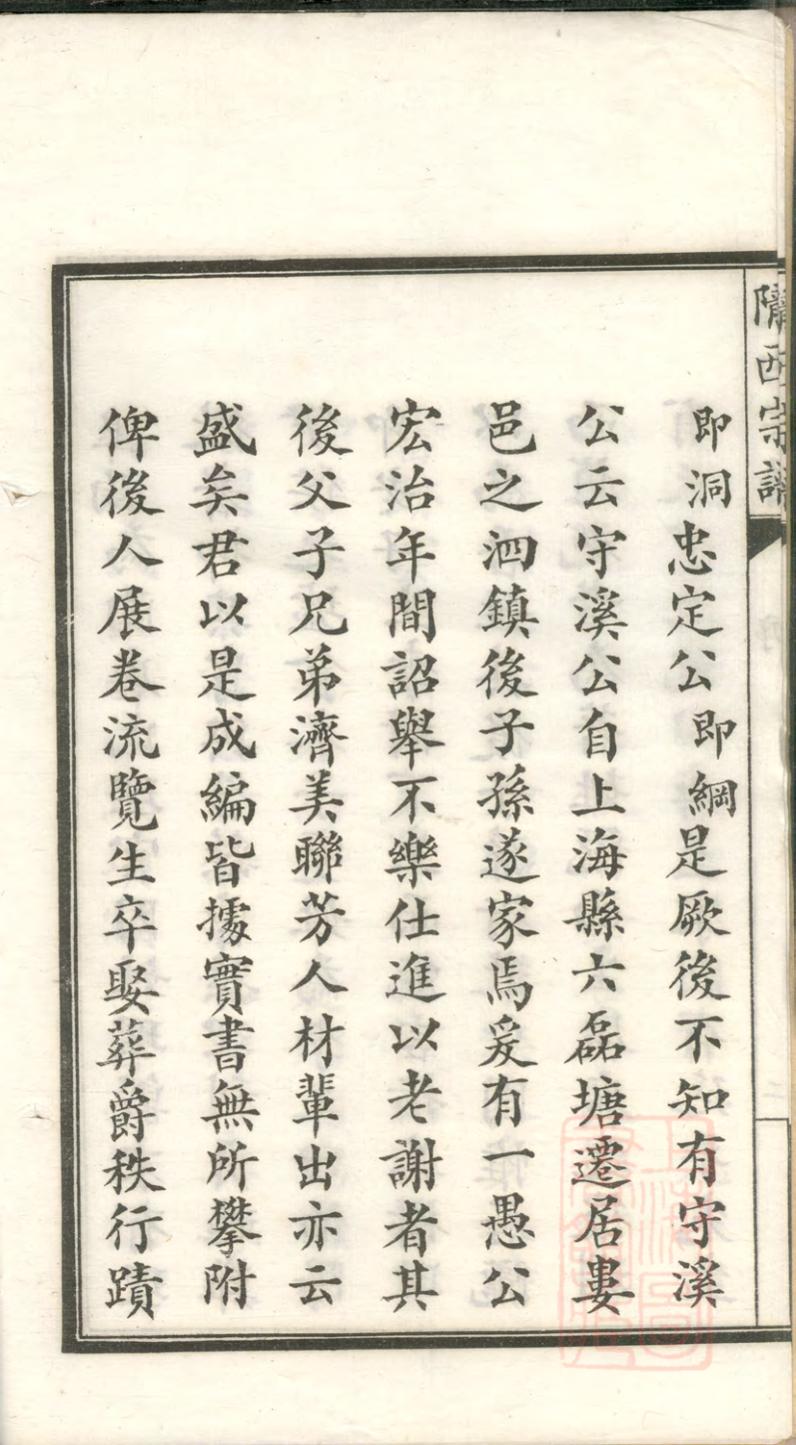 隴西宗譜
即洞忠定公即綱是厥後不知有守溪
公云守溪公自上海縣六磊塘遷居婁
邑之泗鎮後子孫遂家焉爰有一愚公
宏治年間詔舉不樂仕進以老謝者其
後父子兄弟濟美聯芳人材輩出亦云
盛矣君以是成編皆據實書無所攀附
俾後人展卷流覽生卒娶葬爵秩行蹟